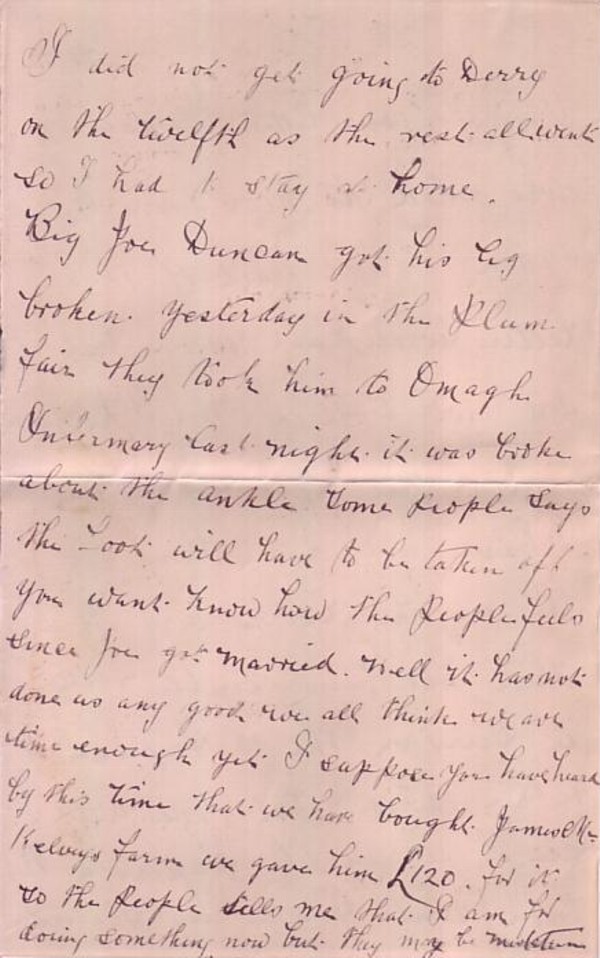 I did not get going to Derry
on the twelfth as the rest all went
so I had to stay at home.
Big Joe Duncan got his leg
broken yesterday in the Plum
fair they took him to Omagh
Infirmary last night it was broke
about the ankle some people says
the foot will have to be taken off
you want know how the people feels
since Joe got married. Well it has not
done us any good we all think we are
time enough yet I suppose you have heard
by this time that we have bought James Mc
Kelveys farm we gave him £120. for it
so the people tells me that I am for
doing something now but they may be mistaken